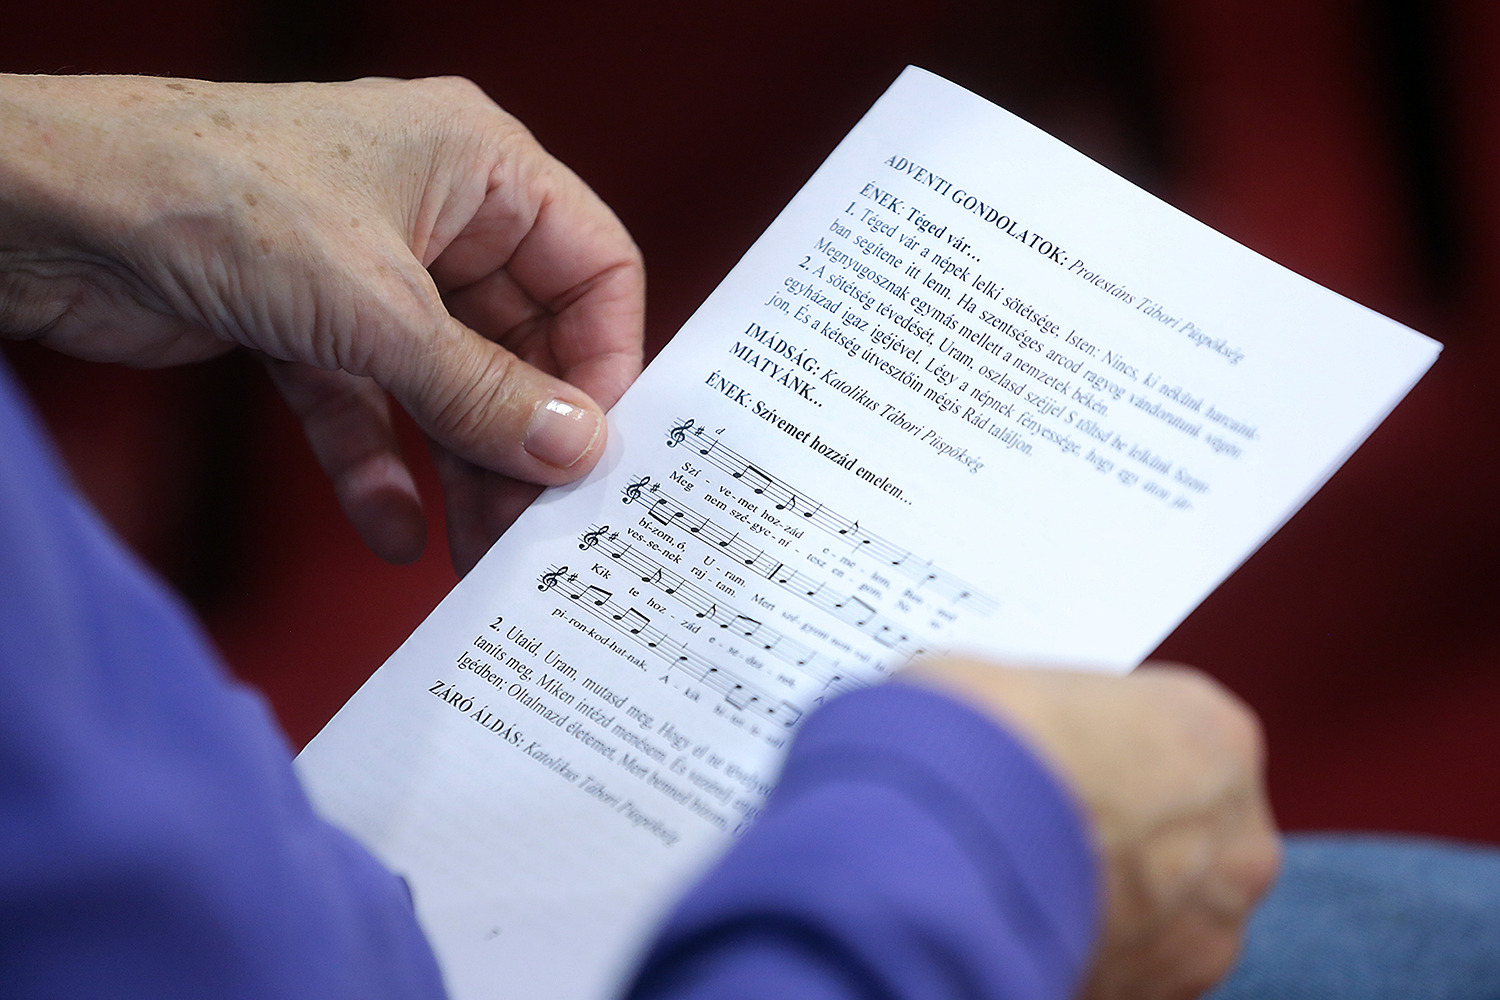 ADVENTI GONDOLATOK: Protestáns Tábori Püspökség
ÉNEK: Téged vár...
1. Téged vár a népek lelki sötétsége, Isten: Nincs, ki nékünk harcaink-
ban segítene itt lenn. Ha szentséges arcod ragyog vándorutunk végén:
Megnyugosznak egymás mellett a nemzetek békén.
2. A sötétség tévedését, Uram, oszlasd széjjel S töltsd be lelkünk Szent-
egyházad igaz igéjével. Légy a népnek fényessége, hogy egy úton jár-
jon, És a kétség útvesztőin mégis Rád találjon.
IMÁDSÁG: Katolikus Tábori Püspökség
MIATYÁNK...
ÉNEK: Szívemet hozzád emelem...
d
Szí - ve - met hoz - zád e - me - lem,
Meg nem szé - gye - ní - tesz en - gem,
bí - zom, ó, U - ram. Mert szé - gyent nem
ves - se - nek raj - tam.
Kik te hoz - zád e - se - dez - nek,
pi - ron - kod - hat - nak, A - kik
2. Utaid, Uram, mutasd meg, Hogy el ne
taníts meg, Miken intézd menésem. És vezérelj
Igédben; Oltalmazd életemet, Mert benned bízom,
ZÁRÓ ÁLDÁS: Katolikus Tábori Püspökség